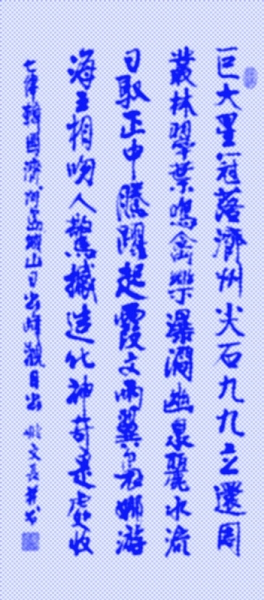 巨大星冠落濟州尖石九九立還周
叢林翠葉鳴禽樂瀑澗幽泉麗水流
日馭正中騰躍起霞文兩翼裊娜游
海上相吻人驚撼造化神奇是處收
七律韓國濟州島城山日出峰觀日出 文長并书